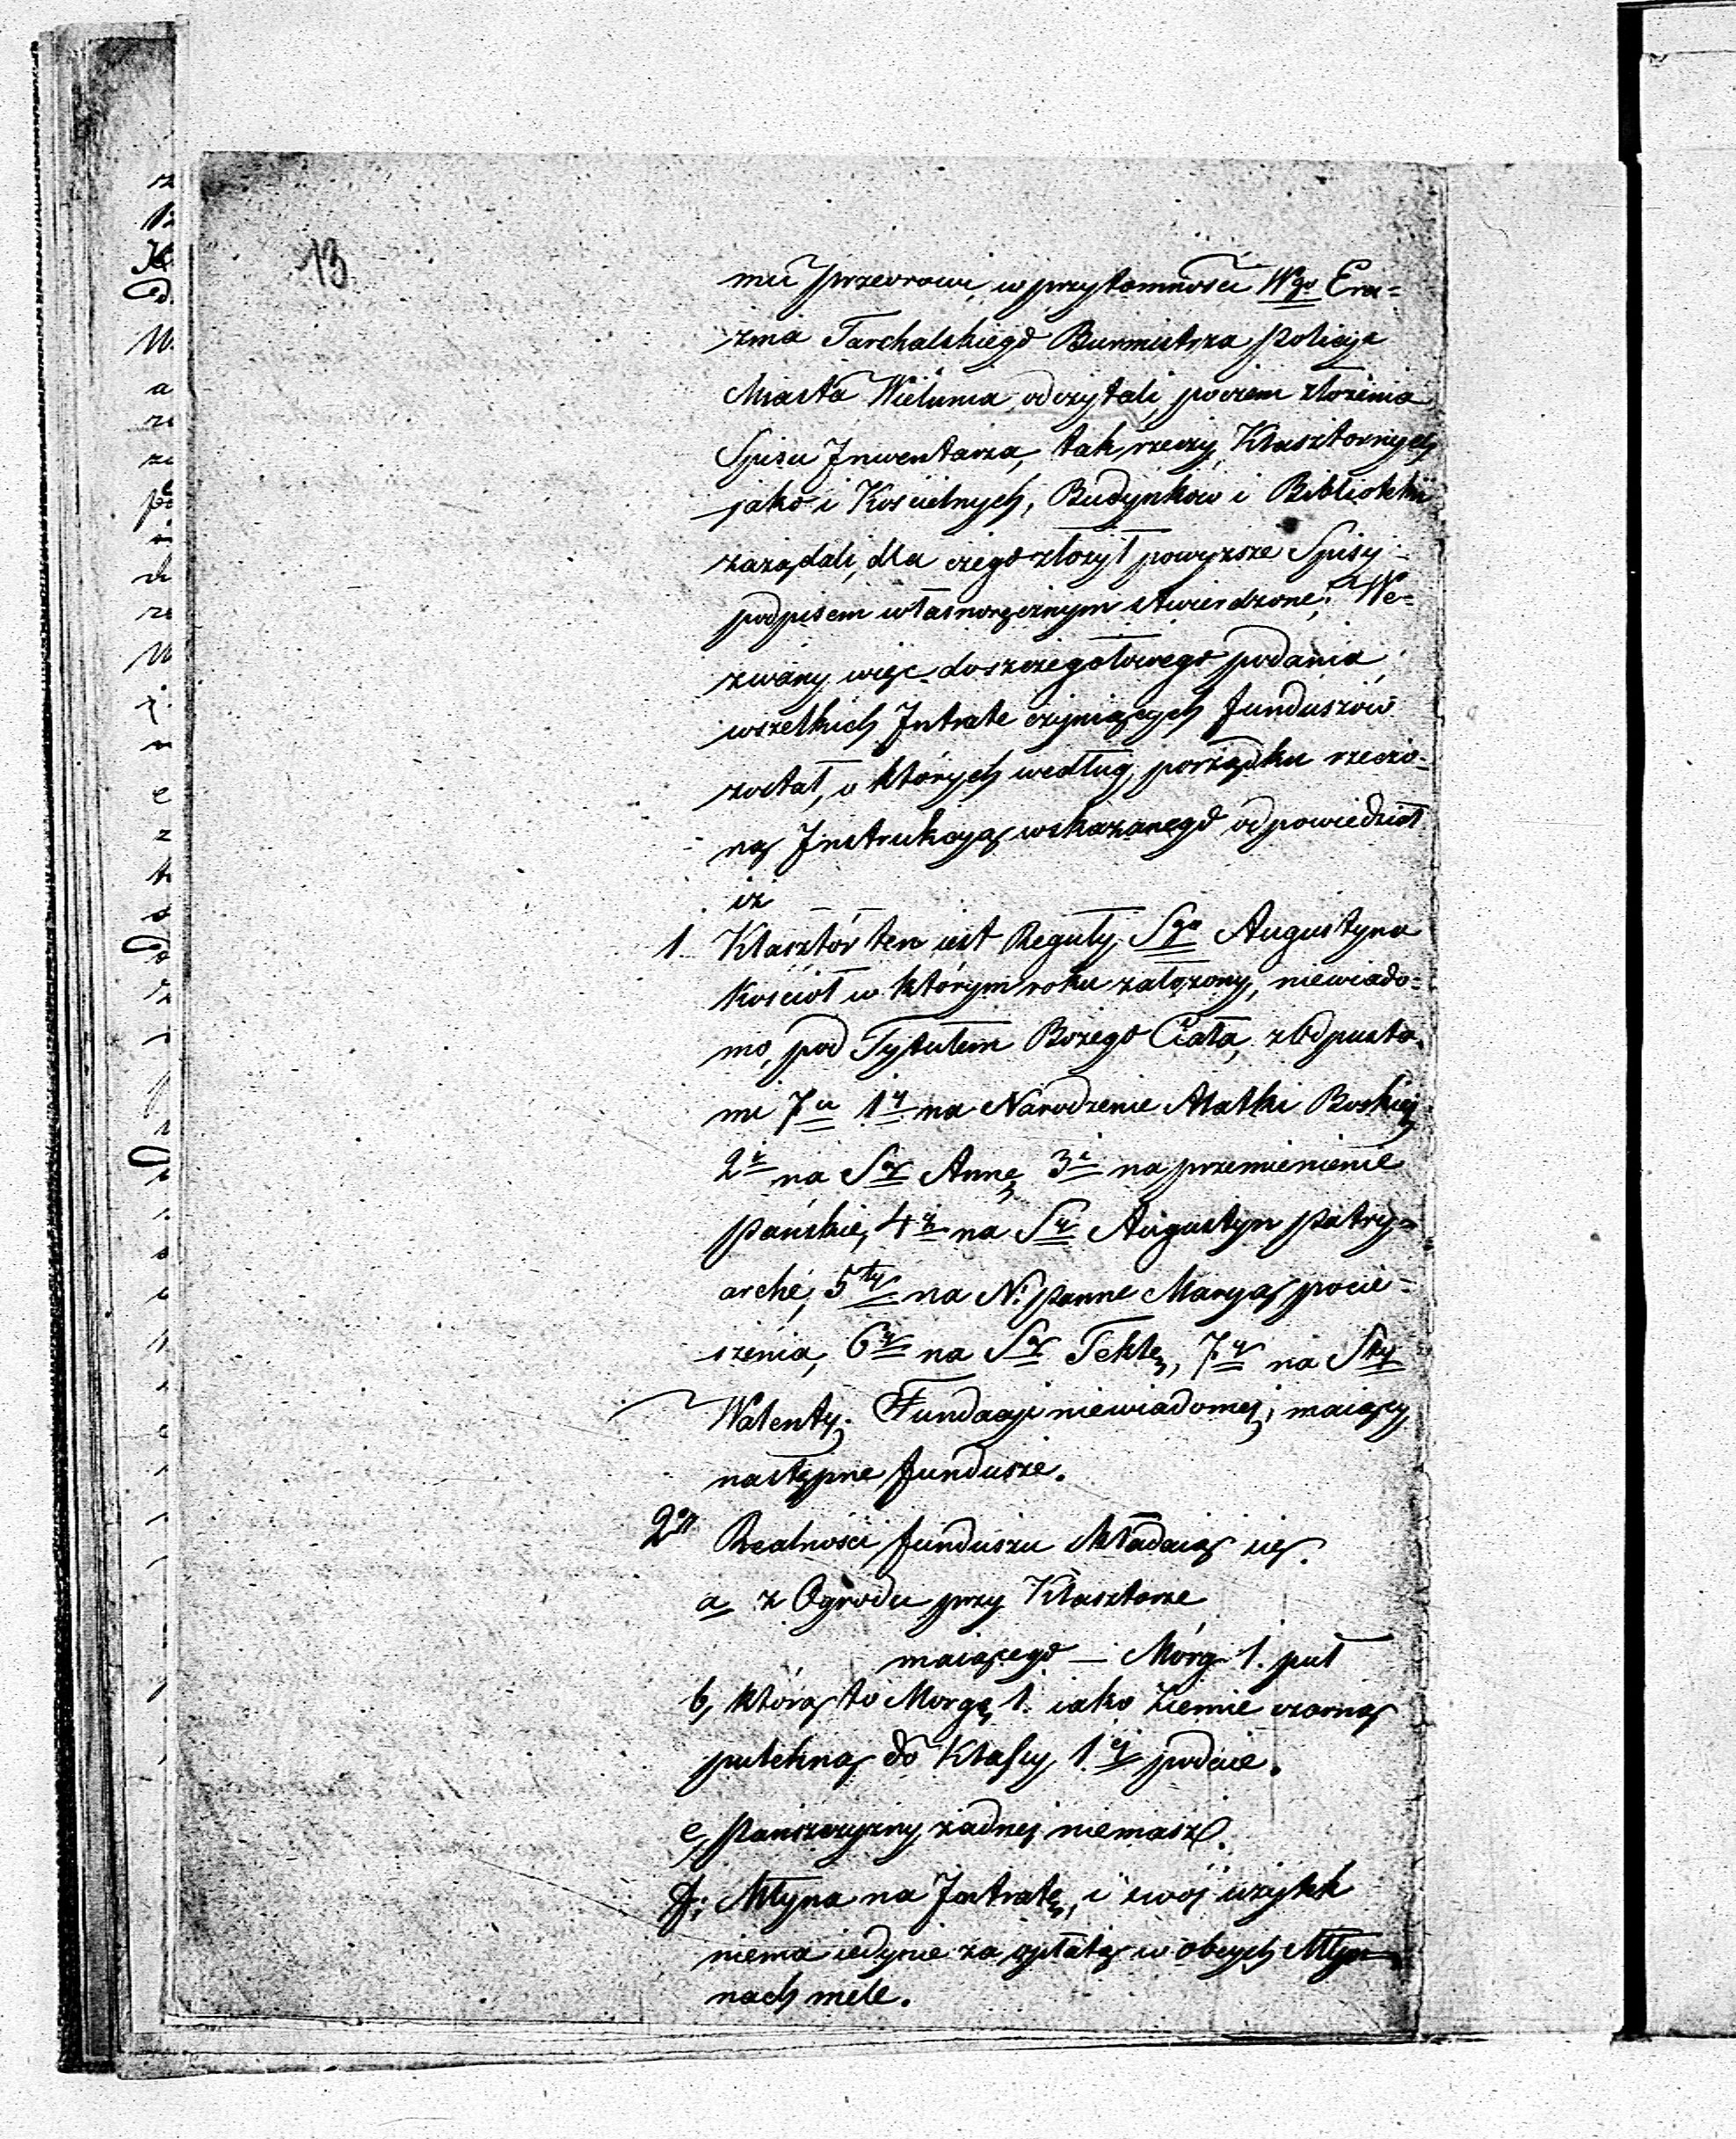 13
mu przeorowi, w przytomności Wgo Era=
zma Tarchalskiego Burmistrza Policyi
Miasta Wielunia odczytali, poczem złożenia
Spisu Inwentarza, tak rzeczy Klasztornych
jako i Kościelnych, Budynkow i Biblioteki
zażądali, dla czego złożył powyższe Spisy
podpisem własnoręcznym stwierdzone. We=
zwany więc do szczegołowego podania
wszelkich Intrate czyniących funduszów
został, o których według porządku rzeczo=
ną Instrukcyą wskazanego odpowiedział
iż
1. Klasztór ten iest Reguły Sgo Augustyna
Kościoł w którym roku założony, niewiado=
mo, pod Tytułem Bożego Ciała, z Odpusta=
mi 7u 1y na Narodzenie Matki Boskiej
2i na Są Annę 3i na przemienienie
Pańskie, 4y na Sy Augustyn Patry=
arché, 5ty na N. Panne Maryą pocie=
szenia, 6y na Są Teklę, 7y na Sty
Walenty. Fundacyi niewiadomej, maiący
następne fundusze.
2o Realności funduszu składaią się.
a z Ogrodu przy Klasztorze
maiącego — Mórg 1. puł
b, którą to Morgę 1. iako ziemie czarną
pulchną do Klassy 1ej podaie.
c, Pańszczyzny żadnej niemasz.
d, Młyna na Intratę, i swój użytek
niema iedynie za opłatą w obcych Młyn=
nach miele.